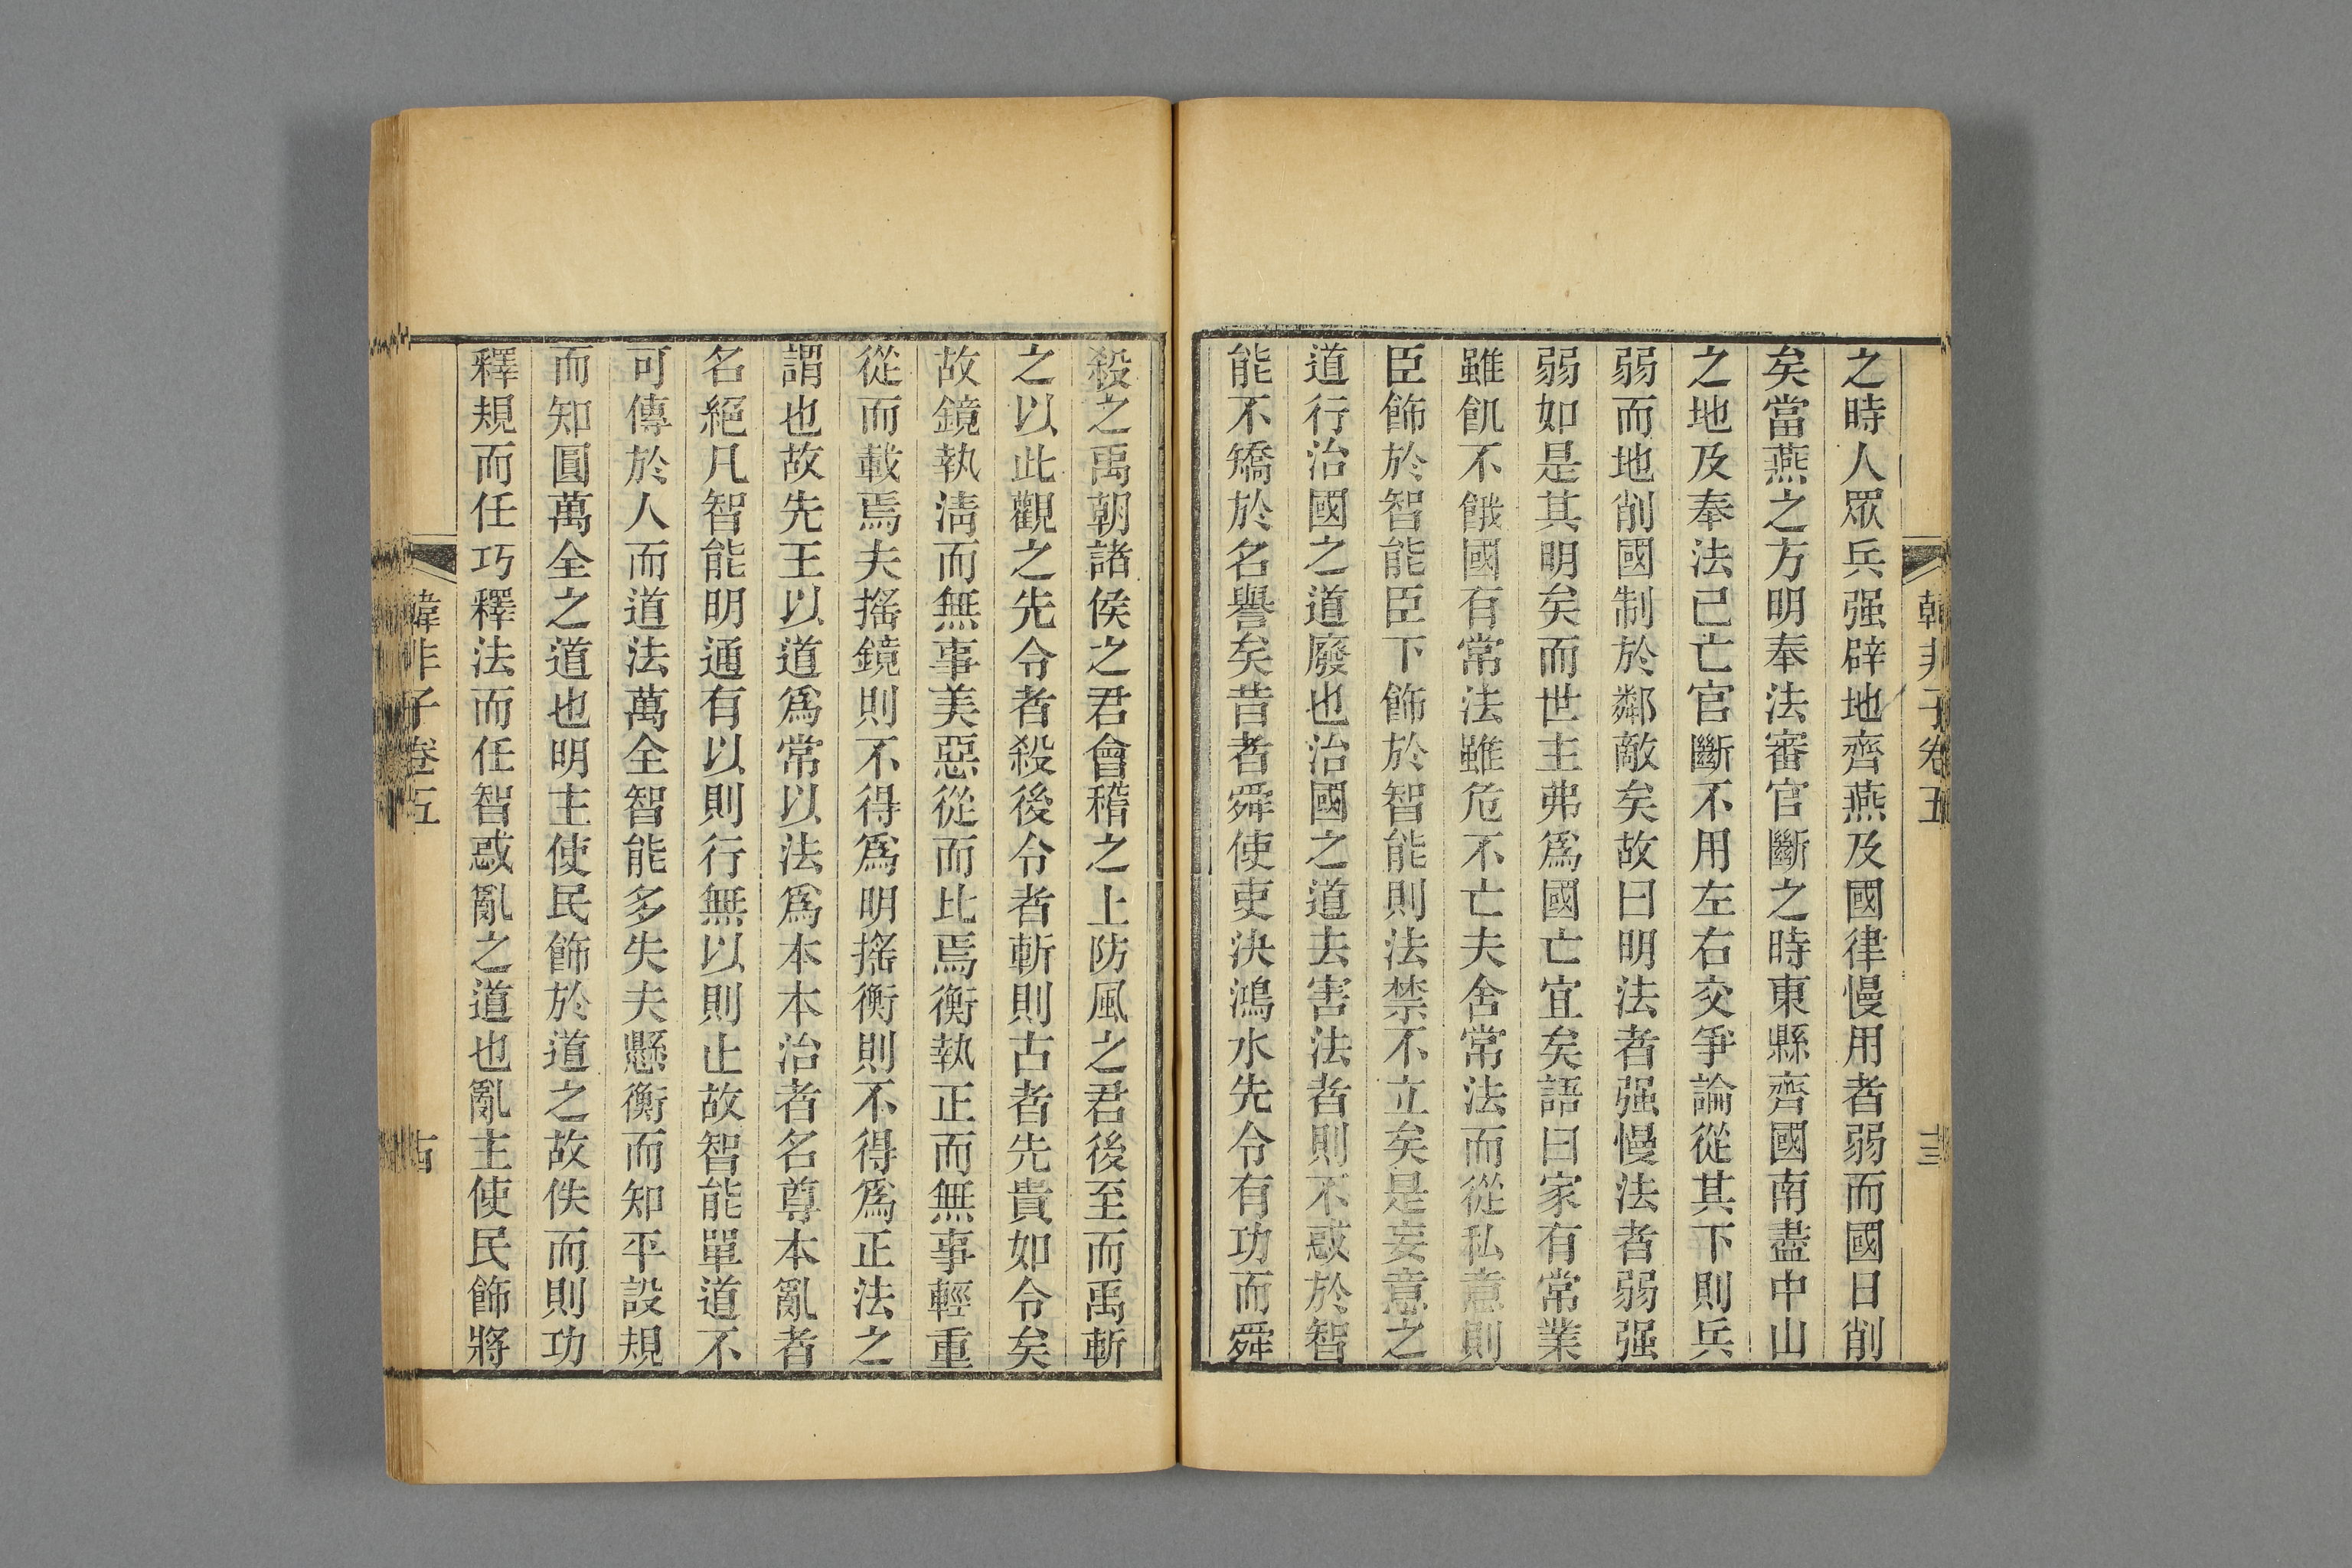 韓非子卷五
十三
之時人眾兵强辟地齊燕及國律慢用者弱而國日削
矣當燕之方明奉法審官斷之時東縣齊國南盡中山
之地及奉法已亡官斷不用左右交爭論從其下則兵
弱而地削國制於鄰敵矣故曰明法者强慢法者弱强
弱如是其明矣而世主弗爲國亡宜矣語曰家有常業
雖飢不餓國有常法雖危不亡夫舍常法而從私意則
臣飾於智能臣下飾於智能則法禁不立矣是妄意之
道行治國之道廢也治國之道去害法者則不惑於智
能不矯於名譽矣昔者舜使吏決鴻水先令有功而舜
殺之禹朝諸侯之君會稽之上防風之君後至而禹斬
之以此觀之先令者殺後令者斬則古者先貴如令矣
故鏡執淸而無事美惡從而比焉衡執正而無事輕重
從而載焉夫搖鏡則不得爲明搖衡則不得爲正法之
謂也故先王以道爲常以法爲本本治者名尊本亂者
名絕凡智能明通有以則行無以則止故智能單道不
可傳於人而道法萬全智能多失夫懸衡而知平設規
而知圓萬全之道也明主使民飾於道之故佚而則功
釋規而任巧釋法而任智惑亂之道也亂主使民飾將
韓非子卷五